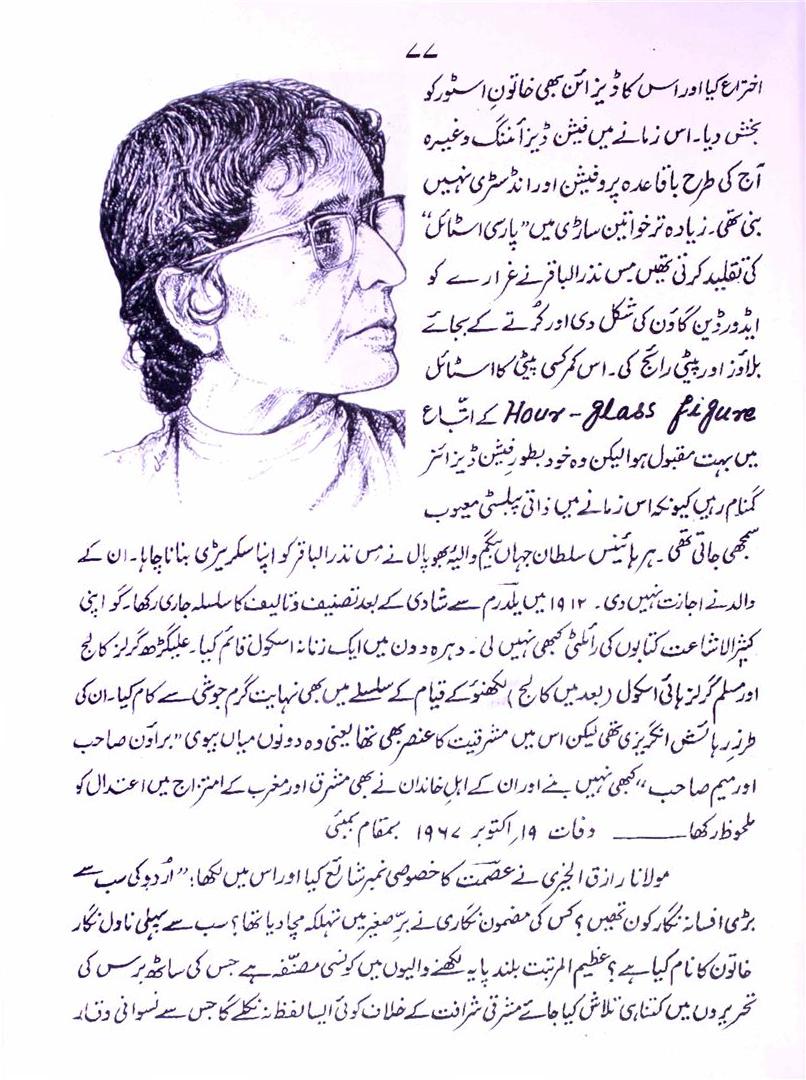 ۷۷
اختراع کیا اور اس کا ڈیزائن بھی خاتونِ اسٹور کو
بخش دیا۔ اس زمانے میں فیشن ڈیزائننگ وغیرہ
آج کی طرح باقاعدہ پروفیشن اور انڈسٹری نہیں
بنی تھی۔ زیادہ تر خواتین ساڑی میں "پارسی اسٹائل"
کی تقلید کرتی تھیں مس نذر الباقر نے غرارے کو
ایڈورڈین گاؤن کی شکل دی اور کُرتے کے بجائے
بلاؤز اور پیٹی رائج کی۔ اس کمر کسی پیٹی کا اسٹائل
Hour-glass figure کے اتباع
میں بہت مقبول ہوا لیکن وہ خود بطور فیشن ڈیزائنر
گمنام رہیں کیونکہ اس زمانے میں ذاتی پبلسٹی معیوب
سمجھی جاتی تھی۔ ہر ہائینس سلطان جہاں بیگم والیۂ بھوپال نے مس نذر الباقر کو اپنا سکریٹری بنانا چاہا۔ ان کے
والد نے اجازت نہیں دی۔ ۱۹۱۲ میں یلدرم سے شادی کے بعد تصنیف و تالیف کا سلسلہ جاری رکھا۔ گو اپنی
کثیر الاشاعت کتابوں کی رائلٹی کبھی نہیں لی۔ دہرہ دون میں ایک زنانہ اسکول قائم کیا۔ علیگڑھ گرلز کالج
اور مسلم گرلز ہائی اسکول (بعد میں کالج) لکھنؤ کے قیام کے سلسلے میں بھی نہایت گرم جوشی سے کام کیا۔ ان کی
طرزِ رہائش انگریزی تھی لیکن اس میں مشرقیت کا عنصر بھی تھا یعنی وہ دونوں میاں بیوی "براؤن صاحب
اور میم صاحب" کبھی نہیں بنے اور ان کے اہلِ خاندان نے بھی مشرق اور مغرب کے امتزاج میں اعتدال کو
ملحوظ رکھا ——— وفات ۱۹؍ اکتوبر ۱۹۶۷ بمقام بمبئی
مولانا رازق الخیری نے عصمت کا خصوصی نمبر شائع کیا اور اس میں لکھا: "اردو کی سب سے
بڑی افسانہ نگار کون تھیں؟ کس کی مضمون نگاری نے برِّصغیر میں تہلکہ مچا دیا تھا؟ سب سے پہلی ناول نگار
خاتون کا نام کیا ہے؟ عظیم المرتبت بلند پایہ لکھنے والیوں میں کونسی مصنّفہ ہے جس کی ساٹھ برس کی
تحریروں میں کتنا ہی تلاش کیا جائے مشرقی شرافت کے خلاف کوئی ایسا لفظ نہ نکلے گا جس سے نسوانی وقار